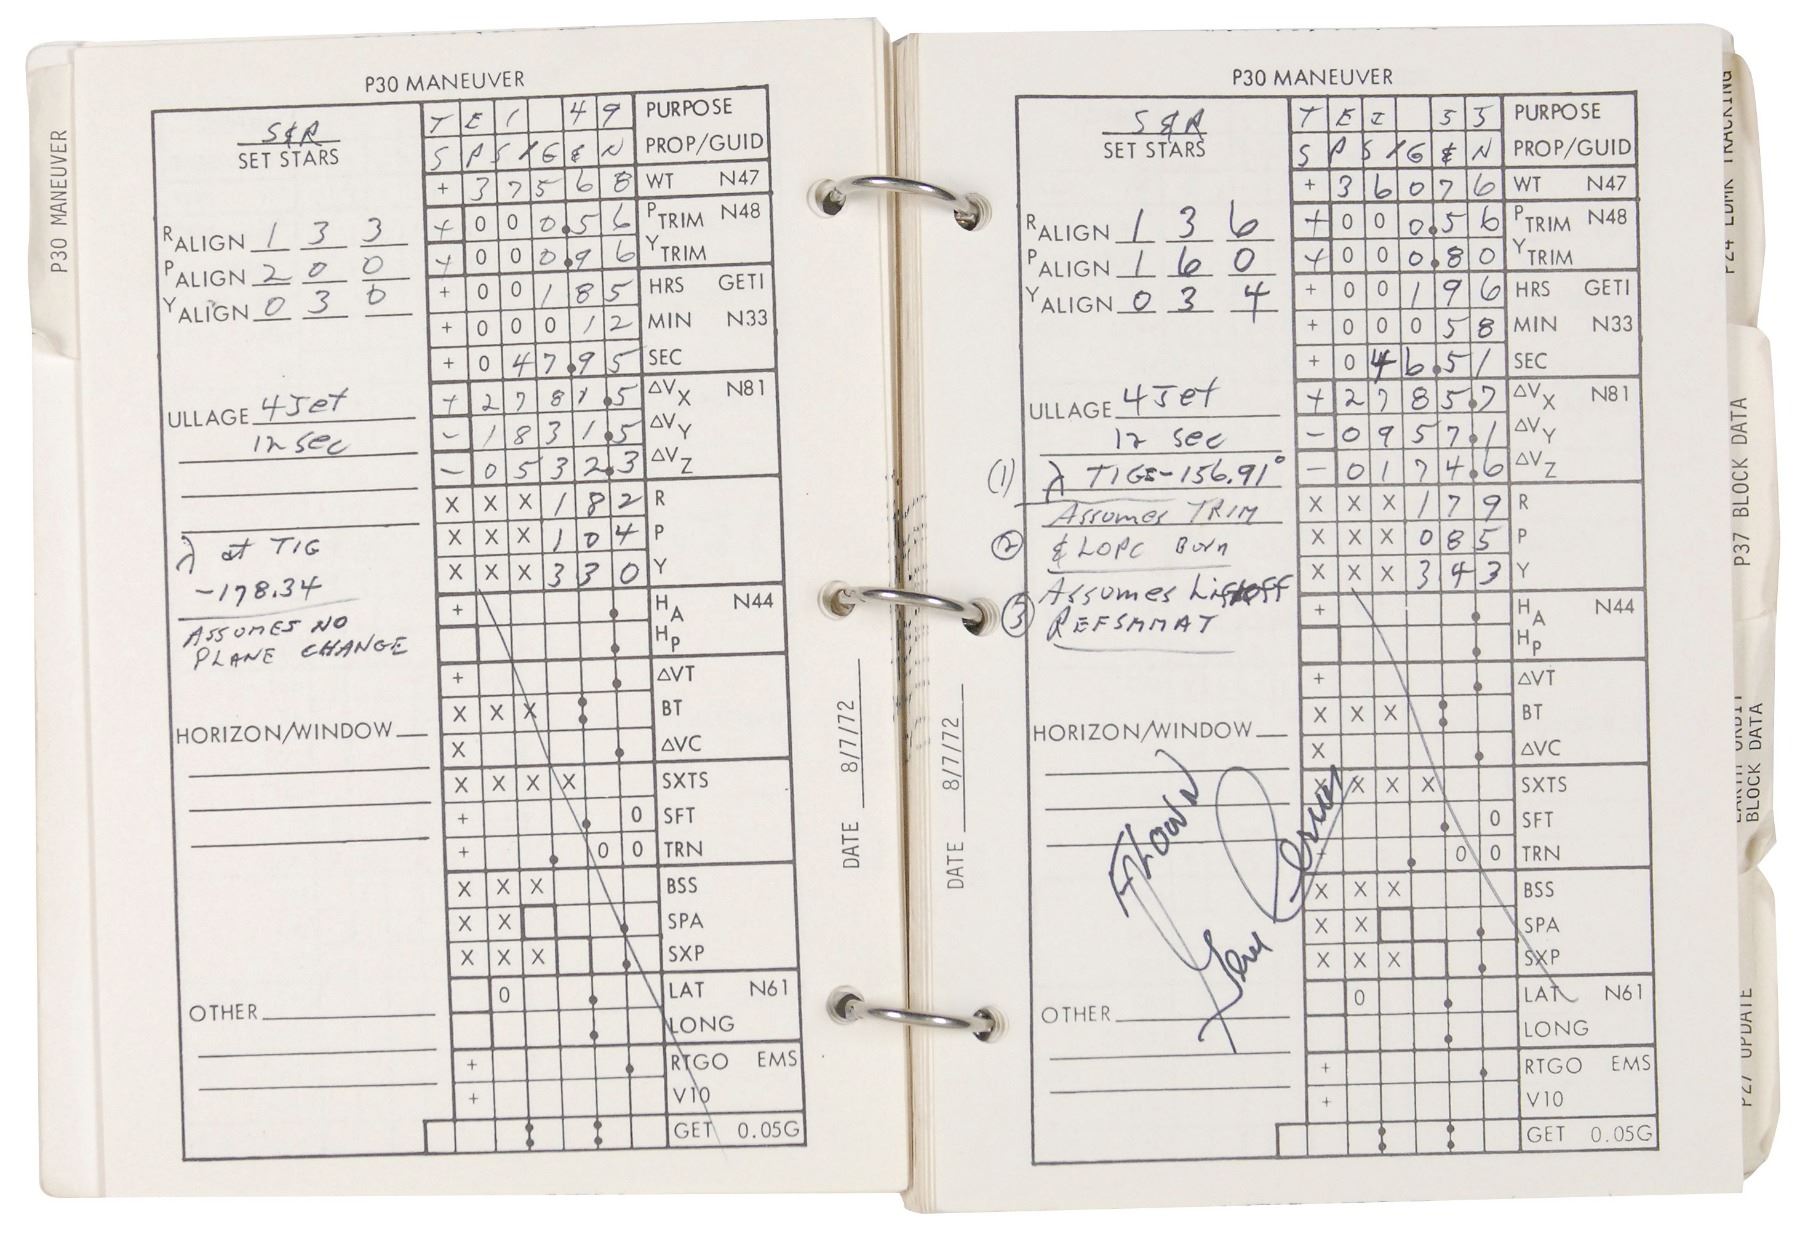 P30 MANEUVER
P30 MANEUVER
S&R
SET STARS
R ALIGN 1 3 3
P ALIGN 2 0 0
Y ALIGN 0 3 0
ULLAGE 4 Jet
12 sec
λ at TIG
-178.34
ASSUMES NO
PLANE CHANGE
HORIZON/WINDOW
OTHER
T E I 4 9 PURPOSE
S P S / G & N PROP/GUID
+ 3 7 5 6 8 WT N47
+ 0 0 0.5 6 P TRIM N48
+ 0 0 0.9 6 Y TRIM
+ 0 0 1 8 5 HRS GETI
+ 0 0 0 1 2 MIN N33
+ 0 4 7.9 5 SEC
+ 2 7 8 1.5 ΔVX N81
- 1 8 3 1.5 ΔVY
- 0 5 3 2.3 ΔVZ
X X X 1 8 2 R
X X X 1 0 4 P
X X X 3 3 0 Y
+ . HA N44
. HP
+ . ΔVT
X X X : BT
X . ΔVC
X X X X SXTS
+ . 0 SFT
+ . 0 0 TRN
X X X BSS
X X . SPA
X X X . SXP
0 . LAT N61
. LONG
+ . RTGO EMS
+ V10
: : GET 0.05G
DATE 8/7/72
P30 MANEUVER
S&R
SET STARS
R ALIGN 1 3 6
P ALIGN 1 6 0
Y ALIGN 0 3 4
ULLAGE 4 Jet
12 sec
(1) λ TIG=-156.91°
Assumes TRIM
(2) & LOPC Burn
(3) Assumes Liftoff
REFSMMAT
HORIZON/WINDOW
Flown
Gene Cernan
OTHER
T E I 5 5 PURPOSE
S P S / G & N PROP/GUID
+ 3 6 0 7 6 WT N47
+ 0 0 0.5 6 P TRIM N48
+ 0 0 0.8 0 Y TRIM
+ 0 0 1 9 6 HRS GETI
+ 0 0 0 5 8 MIN N33
+ 0 4 6.5 1 SEC
+ 2 7 8 5.7 ΔVX N81
- 0 9 5 7.1 ΔVY
- 0 1 7 4.6 ΔVZ
X X X 1 7 9 R
X X X 0 8 5 P
X X X 3 4 3 Y
+ . HA N44
. HP
+ . ΔVT
X X X : BT
X . ΔVC
X X X X SXTS
+ . 0 SFT
+ . 0 0 TRN
X X X BSS
X X . SPA
X X X . SXP
0 . LAT N61
. LONG
+ . RTGO EMS
+ V10
: : GET 0.05G
DATE 8/7/72
P24 LDMK TRACKING
P37 BLOCK DATA
EARTH ORBIT
BLOCK DATA
P27 UPDATE